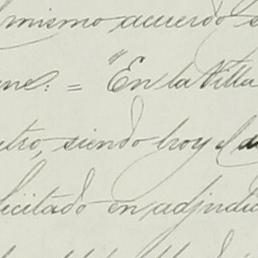 mismo acuerdo
ne: = "En la Villa
tro, siendo hoy
licitado en adjudic